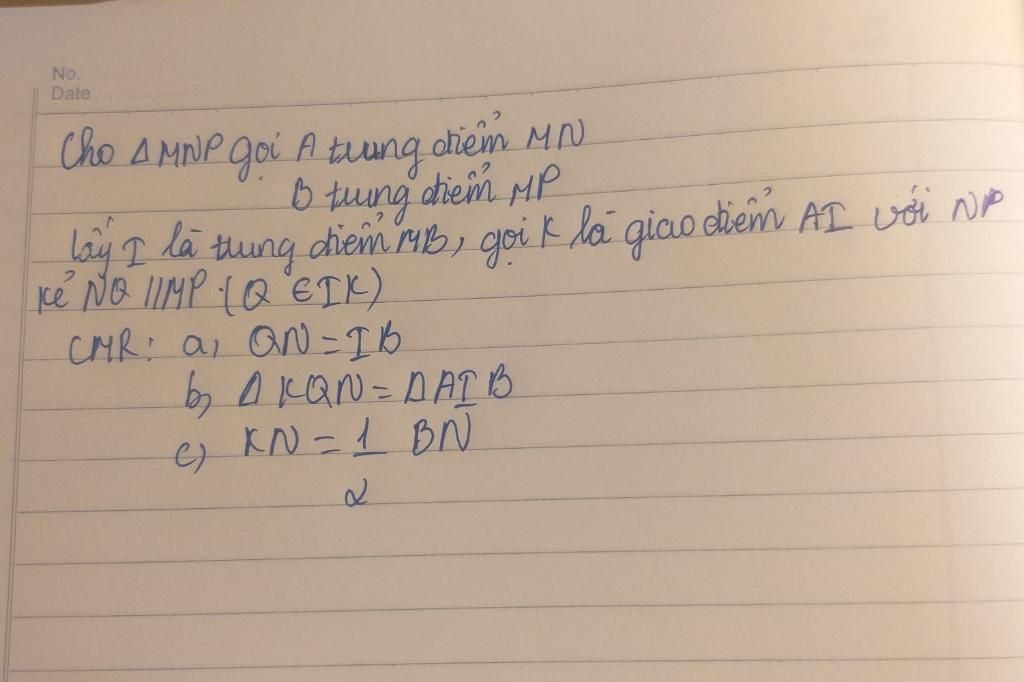 No.
Date
Cho ΔMNP gọi A trung điểm MN
B trung điểm MP
lấy I là trung điểm MB, gọi K là giao điểm AI với NP
kẻ NQ // MP. (Q ∈ IK)
CMR: a, QN = IB
b, ΔKQN = ΔAIB
c) KN = 1/2 BN